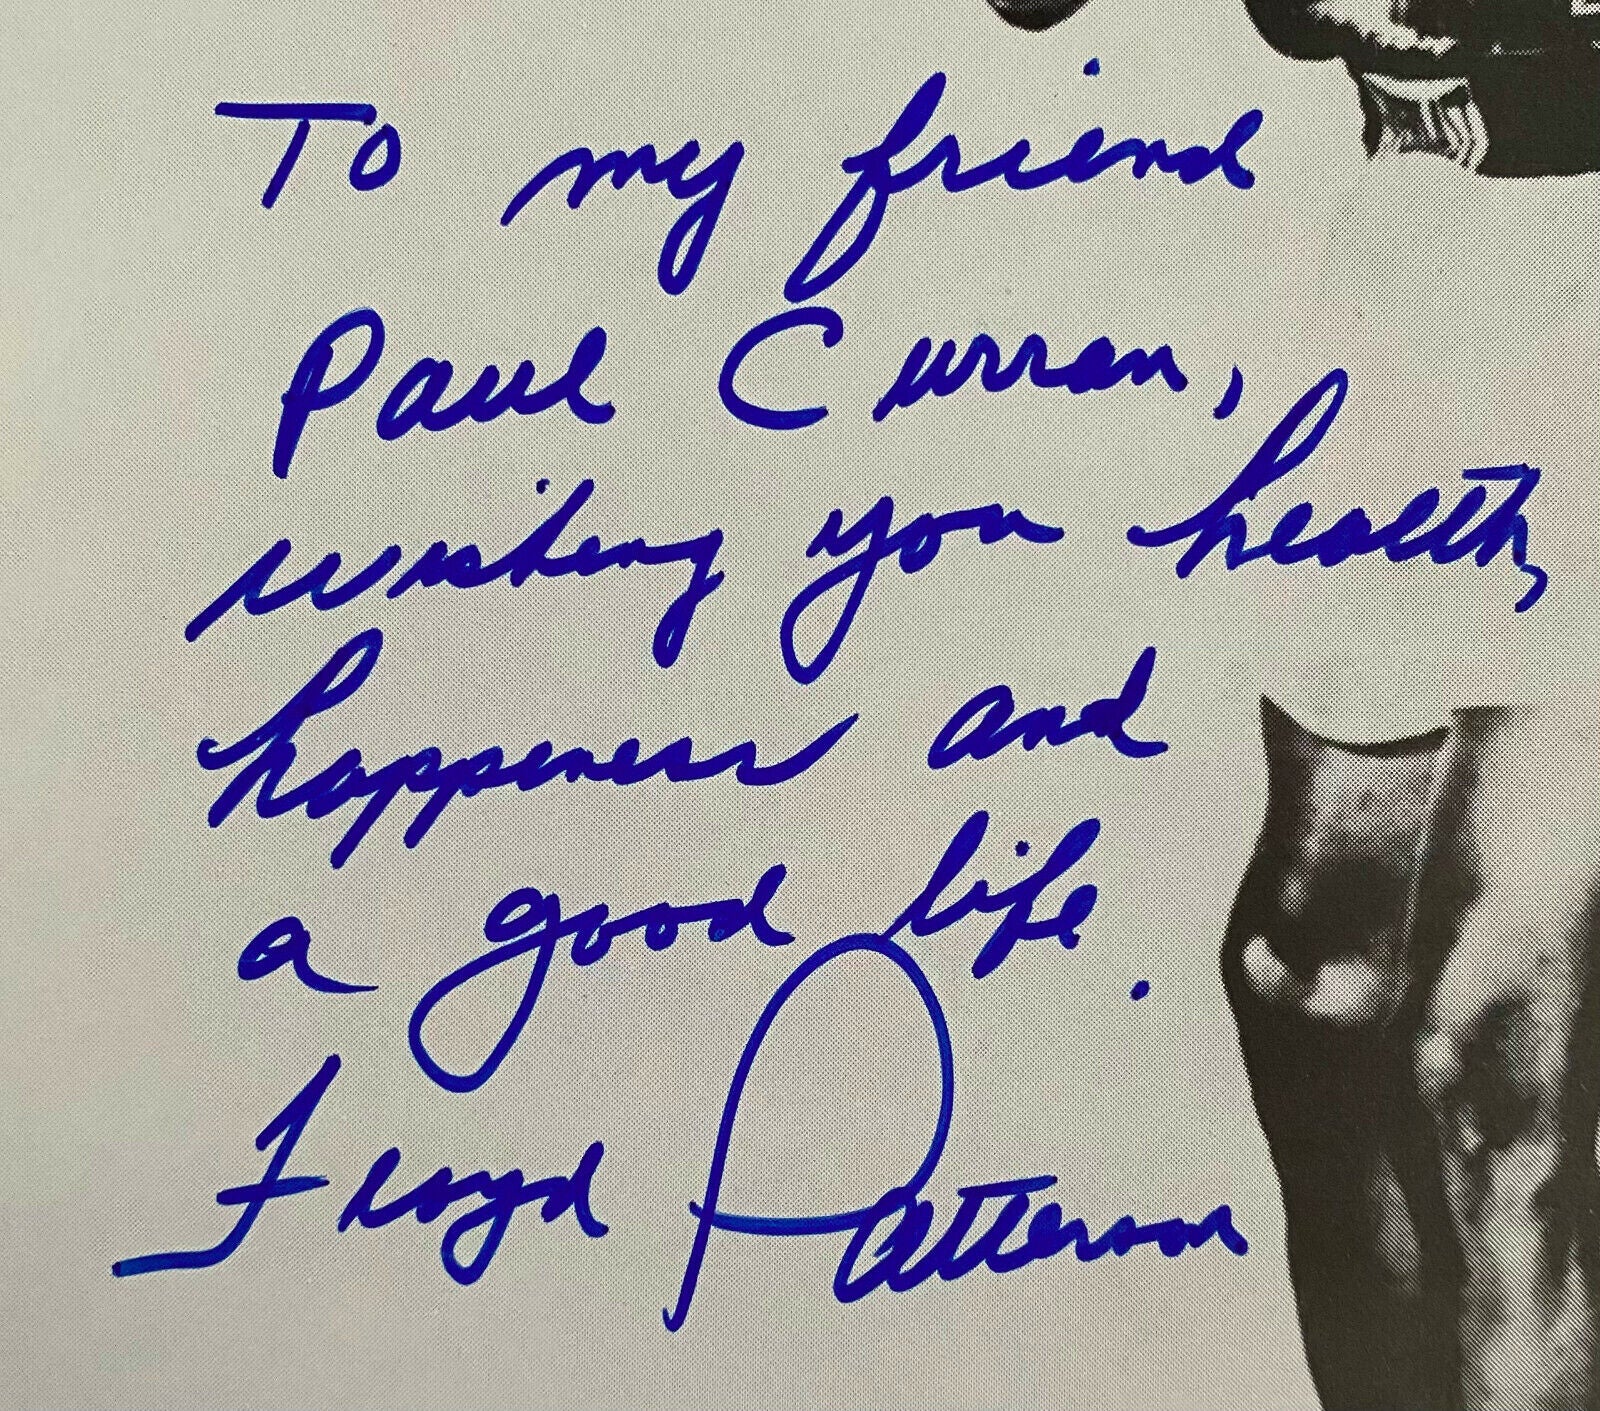 To my friend
Paul Curran,
wishing you health,
happeness and
a good life.
Floyd Patterson